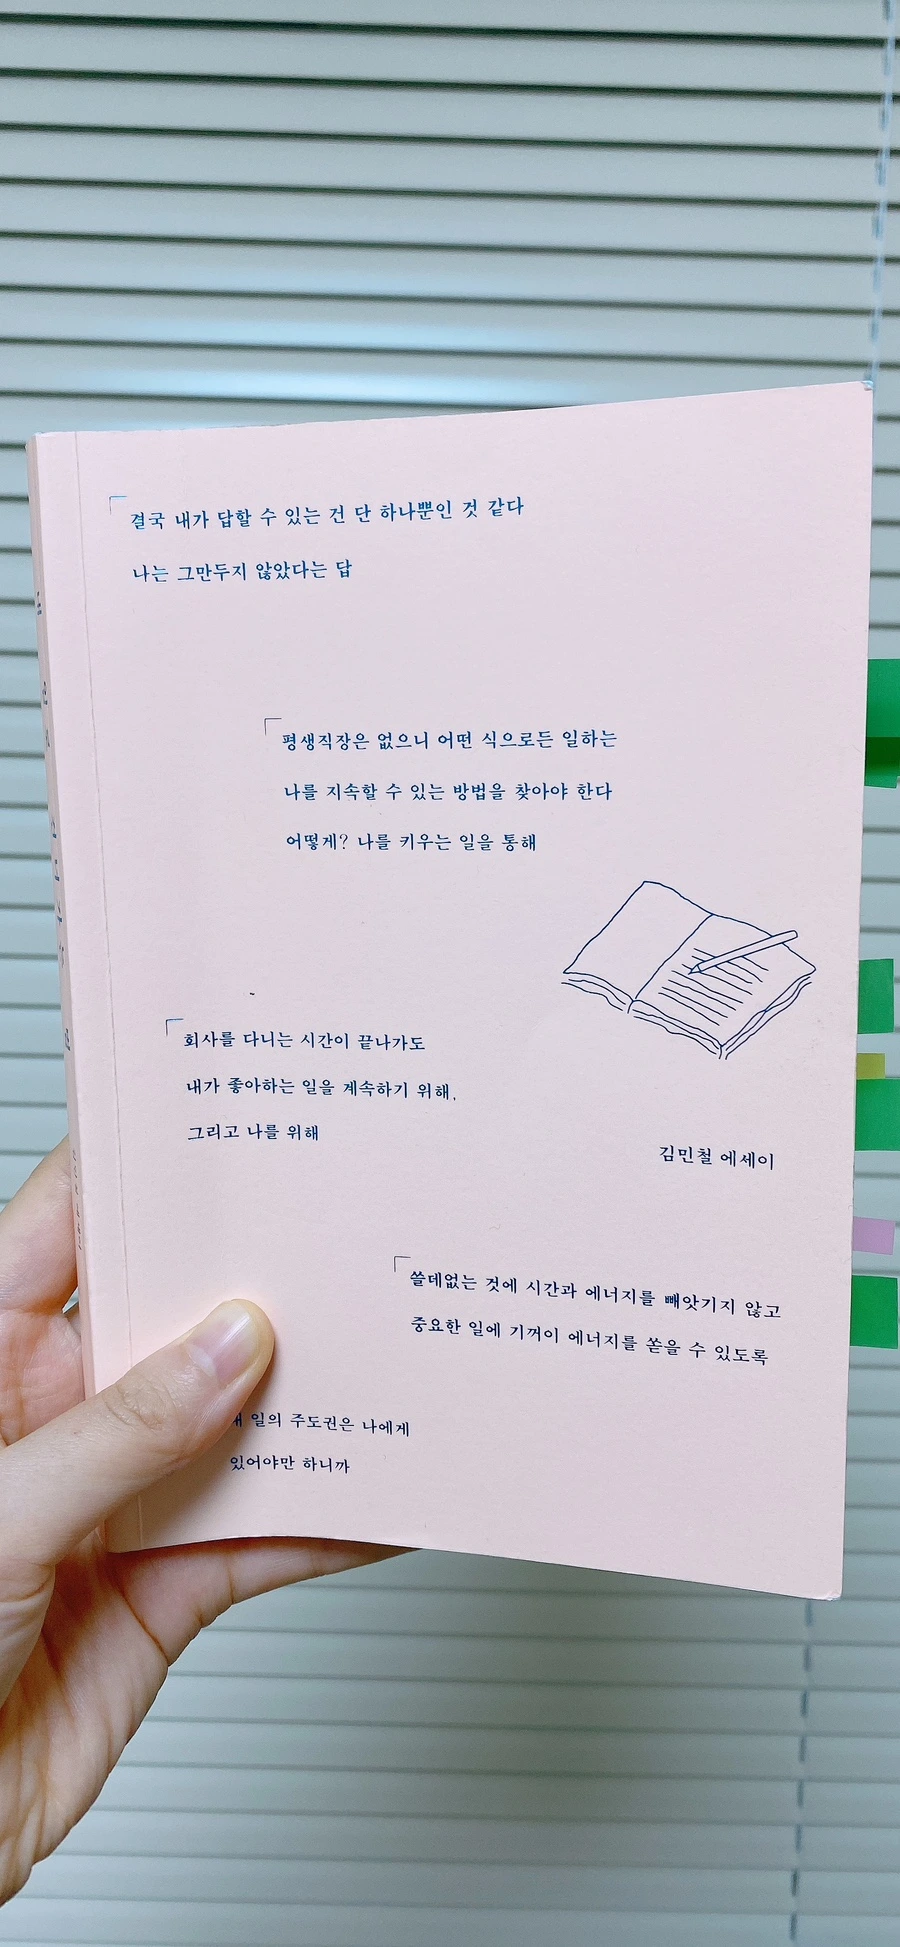 결국 내가 답할 수 있는 건 단 하나뿐인 것 같다
나는 그만두지 않았다는 답
평생직장은 없으니 어떤 식으로든 일하는
나를 지속할 수 있는 방법을 찾아야 한다
어떻게? 나를 키우는 일을 통해
회사를 다니는 시간이 끝나가도
내가 좋아하는 일을 계속하기 위해,
그리고 나를 위해
김민철 에세이
쓸데없는 것에 시간과 에너지를 빼앗기지 않고
중요한 일에 기꺼이 에너지를 쏟을 수 있도록
일의 주도권은 나에게
있어야만 하니까